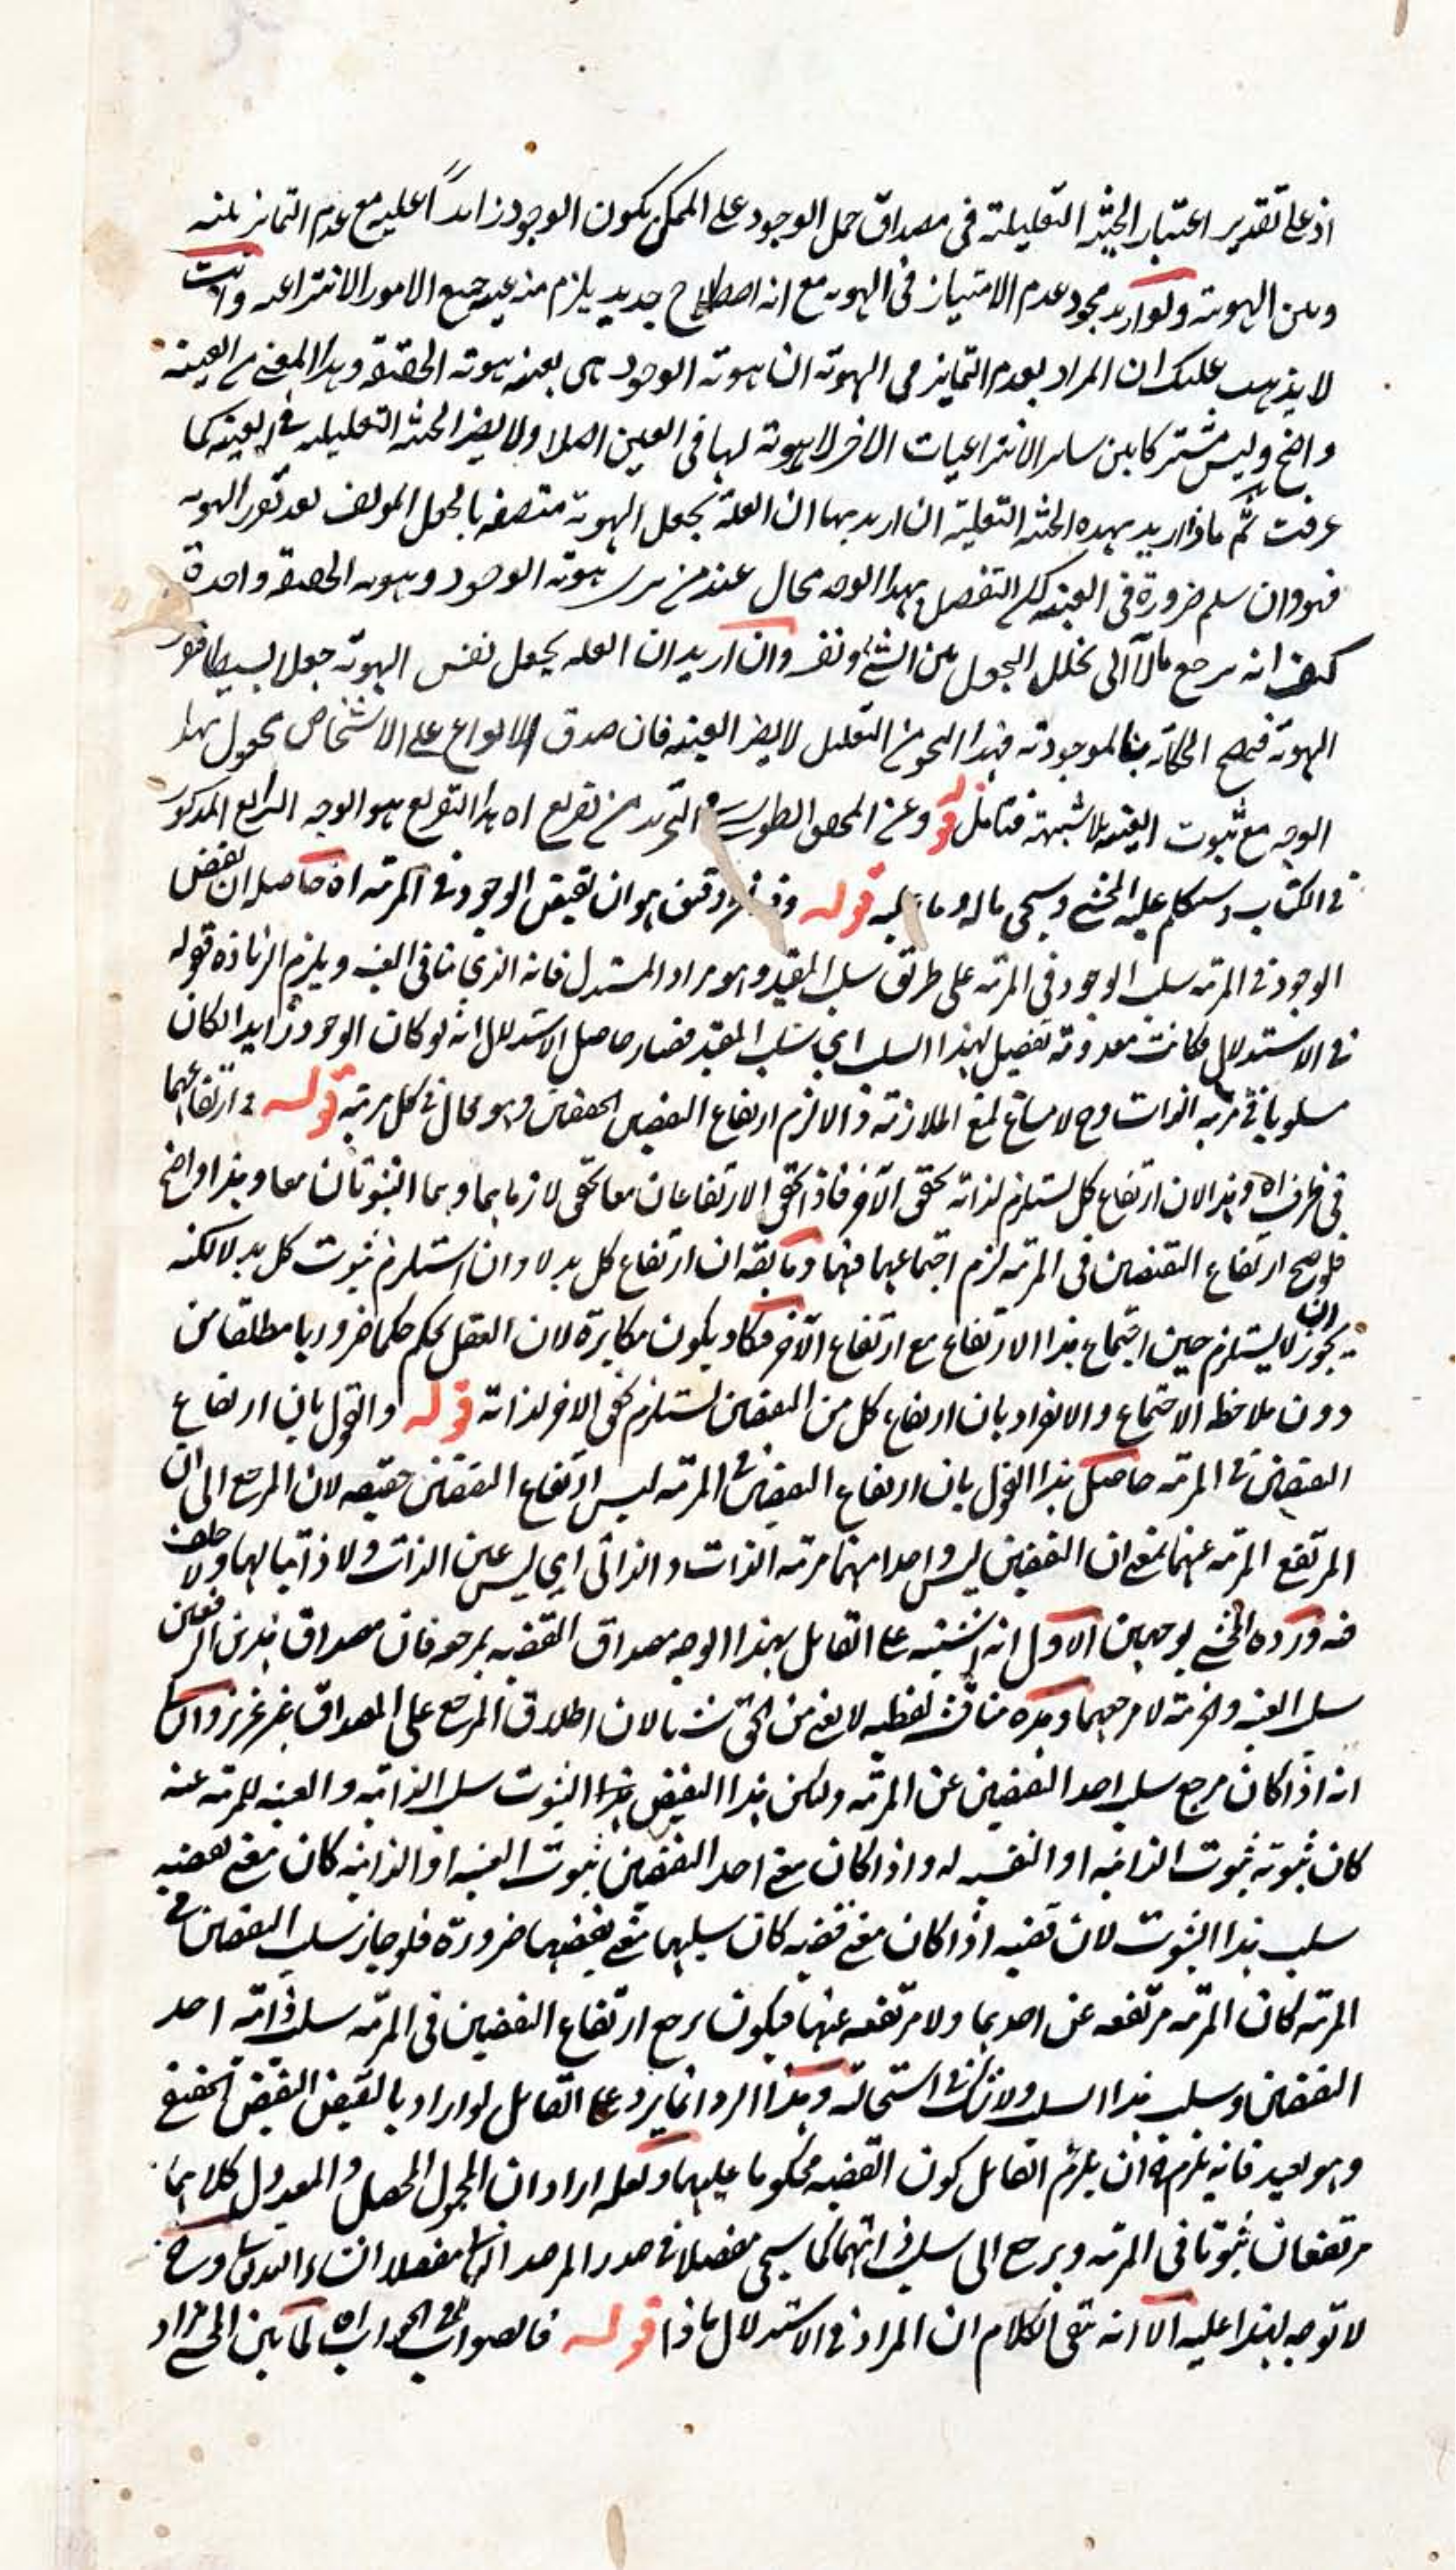 اذ على تقدير اعتبار الحيثية التعليلية في مصداق حمل الوجود على الممكن يكون الوجود زايداً عليه مع عدم التمايز بينه
وبين الهوية ولو اريد مجرد عدم الامتياز في الهوية مع انه اصطلاح جديد يلزم منه عينية جميع الامور الانتزاعية وانت
لا يذهب عليك ان المراد بعدم التمايز في الهوية ان هوية الوجود هي بعينه هوية الحقيقة وهذا المعنى من العينية
واضح وليس مشتركا بين ساير الانتزاعيات الاخر لا هوية لها في العين اصلا ولا يضر الحيثية التعليلية في العينية كما
عرفت ثم ماذا اريد بهذه الحيثية التعليلية ان اريد بها ان العلة تجعل الهوية متصفة بالجعل المولف بعد تقرر الهوية
فهو وان سلم ضرورة في العينية لكن التفصيل بهذا الوجه محال عند من يرى هوية الوجود وهوية الحقيقة واحدة
كيف انه يرجع مآلا الى تخلل الجعل بين الشئ ونفسه وان اريد ان العلة يجعل نفس الهوية جعلا بسيطا
الهوية فيصح الحكاية بالموجودية فهذا النحو من التعليل لا يضر العينية فان صدق الانواع على الاشخاص مجعول بهذا
الوجه مع ثبوت العينية بلا شبهة فتامل قوله وعن المحقق الطوسي في التجريد من تفريع اه هذا التفريع هو الوجه الرابع المذكور
في الكتاب وسيتكلم عليه المحشي وسيجي ماله وما عليه قوله وفيه نظر دقيق هو ان نقيض الوجود في المرتبة اه حاصله ان نقيض
الوجود في المرتبة سلب الوجود في المرتبة على طريق سلب المقيد وهو مراد المستدل فانه الذي ينافي العينية ويلزم الزيادة قوله
في الاستدلال فكانت معدومة تفصيل لهذا السلب اي سلب المقيد فصار حاصل الاستدلال انه لو كان الوجود زايدا لكان
مسلوبا في مرتبة الذات وح لا مساغ لمنع الملازمة والا لزم ارتفاع النقيضين الحقيقيين وهو محال في كل مرتبة قوله في ارتفاعهما
في ظرف اه وهذا لان ارتفاع كل يستلزم لذاته تحقق الآخر فاذا تحقق الارتفاعان معا تحقق لازماهما وهما الثبوتان معا وهذا واضح
فلو صح ارتفاع النقيضين في المرتبة لزم اجتماعهما فيها وما يقه ان ارتفاع كل بدلا وان استلزم ثبوت كل بدلا لكنه
يجوز ان لا يستلزم حين اجتماع هذا الارتفاع مع ارتفاع الآخر فكاد يكون مكابرة لان العقل يحكم حكما ضروريا مطلقا من
دون ملاحظة الاجتماع والانفراد بان ارتفاع كل من النقيضين يستلزم تحقق الاخر لذاته قوله والقول بان ارتفاع
النقيضين في المرتبة حاصل هذا القول بان ارتفاع النقيضين في المرتبة ليس ارتفاع النقيضين حقيقة لان المرجع الى ان
المرتفع المرتبة عنهما بمعنى ان النقيضين ليس واحد منهما مرتبة الذات والذاتي اي ليس عين الذات ولا ذاتيا لها ولا خلف
فيه ورده المحشي بوجهين الاول انه اشتبه على القايل بهذا الوجه مصداق القضية بمرجعه فان مصداق هذين الرفعين
سلب العينية والجزئية لا مرجعهما وهذه مناقشة لفظية لا يغني من الحق شيئا لان اطلاق المرجع على المصداق غير عزيز والثاني
انه اذا كان مرجع سلب احد النقيضين عن المرتبة ولكن هذا النقيض هذا الثبوت سلب الذاتية والعينية للمرتبة عنه
كان ثبوته ثبوت الذاتية او النفسية له واذا كان معنى احد النقيضين ثبوت العينية او الذاتية كان معنى نقيضه
سلب هذا الثبوت لان قضية اذا كان معنى قضية كان سلبهما معنى نقيضهما ضرورة فلو جاز سلب النقيضين في
المرتبة كان المرتبة مرتفعة عن احدهما ولا مرتفعة عنها فيكون يرجع ارتفاع النقيضين في المرتبة سلب ذاتية احد
النقيضين وسلب هذا السلب ولا شك في استحالته وهذا الرد انما يرد على القايل لو اراد بالنقيض النقيض الحقيقي
وهو بعيد فانه يلزم ان يلزم القايل كون القضية محكوما عليهما ولعله اراد ان المجهول المحصل والمعدول كلاهما
مرتفعان ثبوتا في المرتبة ويرجع الى سلب ذاتيهما كما سيجي مفصلا في صدر المرصد الثاني مفصلا ان شاء الله تعالى وح
لا توجه لهذا عليه الا انه بقي الكلام ان المراد في الاستدلال ماذا قوله فالصواب في الجواب اه لما بين المحشي مراد